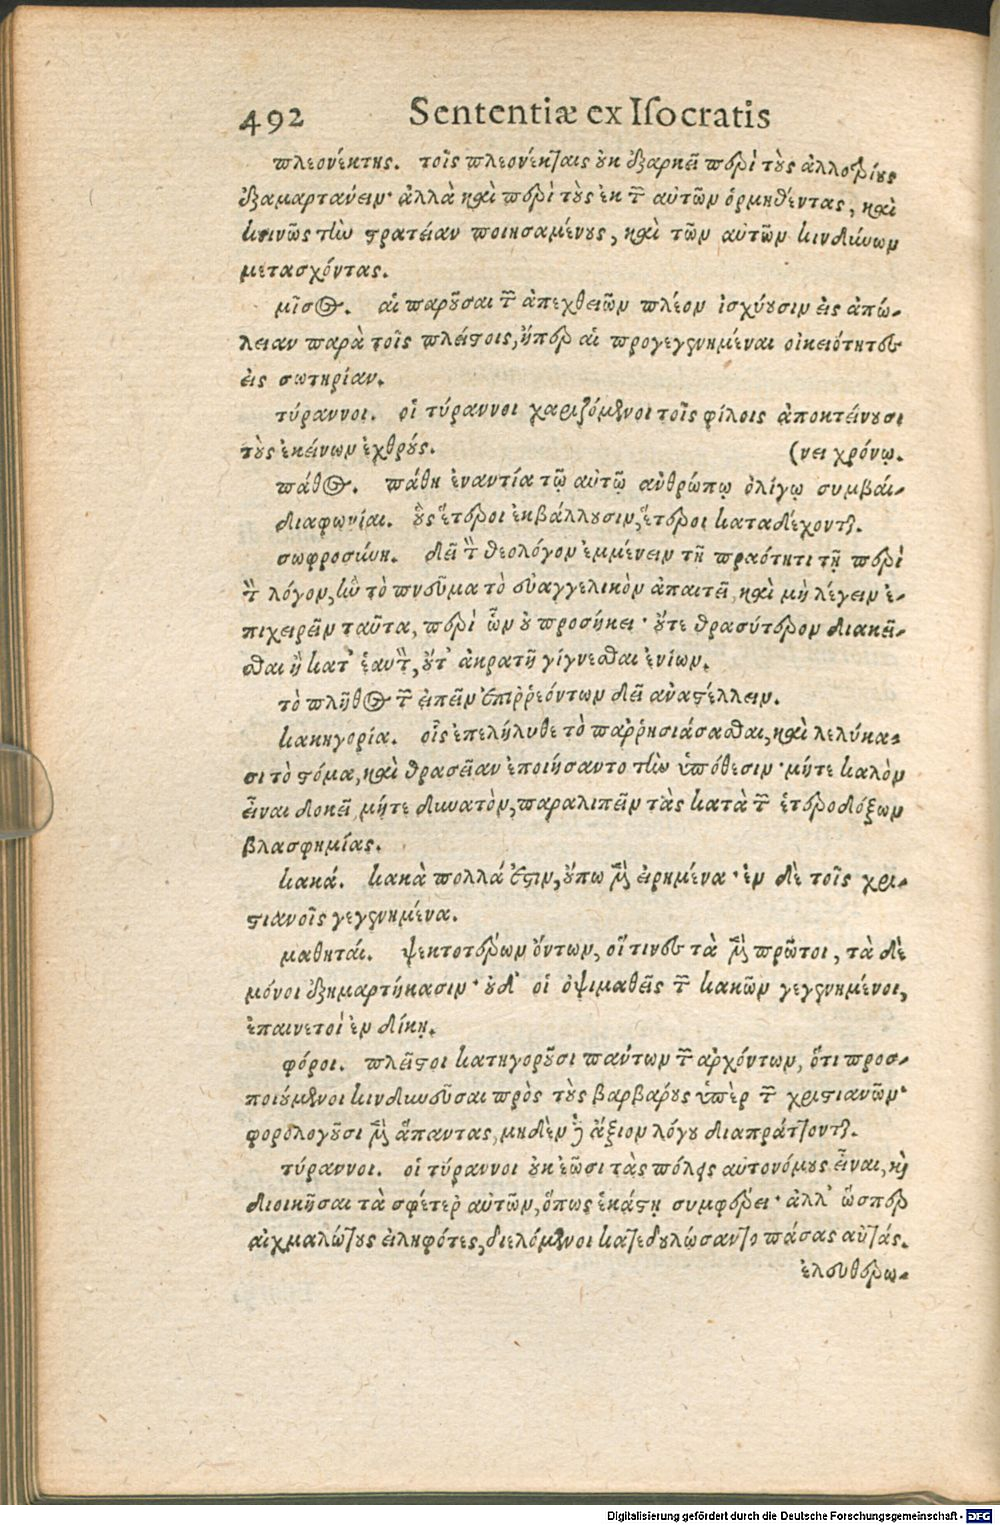 492 Sententiæ ex Isocratis
πλεονέκτης. τοῖς πλεονέκταις οὐκ ἐξαρκεῖ περὶ τοὺς ἀλλοτρίους
ἐξαμαρτάνειν· ἀλλὰ καὶ περὶ τοὺς ἐκ τῶν αὐτῶν ὁρμηθέντας, καὶ
κοινῶς τὴν στρατείαν ποιησαμένους, καὶ τῶν αὐτῶν κινδύνων
μετασχόντας.
μῖσος. αἱ παροῦσαι τῶν ἀπεχθειῶν πλέον ἰσχύουσιν εἰς ἀπώ-
λειαν παρὰ τοῖς πλείστοις, ἤπερ αἱ προγεγενημέναι οἰκειότητες
εἰς σωτηρίαν.
τύραννοι. οἱ τύραννοι χαριζόμενοι τοῖς φίλοις ἀποκτείνουσι
τοὺς ἐκείνων ἐχθρούς. (νει χρόνῳ.
πάθος. πάθη ἐναντία τῷ αὐτῷ ἀνθρώπῳ ὀλίγῳ συμβαί-
διαφωνίαι. οὓς ἕτεροι ἐκβάλλουσιν, ἕτεροι καταδέχονται.
σωφροσύνη. δεῖ τὸν θεολόγον ἐμμένειν τῇ πραότητι τῇ περὶ
τὸν λόγον, ἣν τὸ πνεῦμα τὸ εὐαγγελικὸν ἀπαιτεῖ, καὶ μὴ λέγειν ἐ-
πιχειρεῖν ταῦτα, περὶ ὧν οὐ προσήκει· οὔτε θρασύτερον διακεῖ-
σθαι ἢ κατ' ἑαυτὸν, οὔτ' ἀκρατῆ γίγνεσθαι ἐνίων.
τὸ πλῆθος τῶν εἰπεῖν ἐπιῤῥεόντων δεῖ ἀναστέλλειν.
κακηγορία. οἷς ἐπελήλυθε τὸ παῤῥησιάσασθαι, καὶ λελύκα-
σι τὸ στόμα, καὶ θρασεῖαν ἐποιήσαντο τὴν ὑπόθεσιν· μήτε καλὸν
εἶναι δοκεῖ, μήτε δυνατὸν, παραλιπεῖν τὰς κατὰ τῶν ἑτεροδόξων
βλασφημίας.
κακά. κακὰ πολλά ἐστιν, οὔπω μὲν εἰρημένα· ἐν δὲ τοῖς χρι-
στιανοῖς γεγενημένα.
μαθηταί. ψεκτοτέρων ὄντων, οἵτινες τὰ μὲν πρῶτοι, τὰ δὲ
μόνοι ἐξημαρτήκασιν· οὐδ' οἱ ὀψιμαθεῖς τῶν κακῶν γεγενημένοι,
ἐπαινετοὶ ἐν δίκῃ.
φόροι. πλεῖστοι κατηγοροῦσι πάντων τῶν ἀρχόντων, ὅτι προσ-
ποιούμενοι κινδυνεῦσαι πρὸς τοὺς βαρβάρους ὑπὲρ τῶν χριστιανῶν·
φορολογοῦσι μὲν ἅπαντας, μηδὲν δὲ ἄξιον λόγου διαπράττονται.
τύραννοι. οἱ τύραννοι οὐκ ἐῶσι τὰς πόλεις αὐτονόμους εἶναι, καὶ
διοικῆσαι τὰ σφέτερ' αὐτῶν, ὅπως ἑκάστῃ συμφέρει· ἀλλ' ὥσπερ
αἰχμαλώτους εἰληφότες, διελόμενοι κατεδουλώσαντο πάσας αὐτάς.
ἐλευθερω-
Digitalisierung gefördert durch die Deutsche Forschungsgemeinschaft - DFG